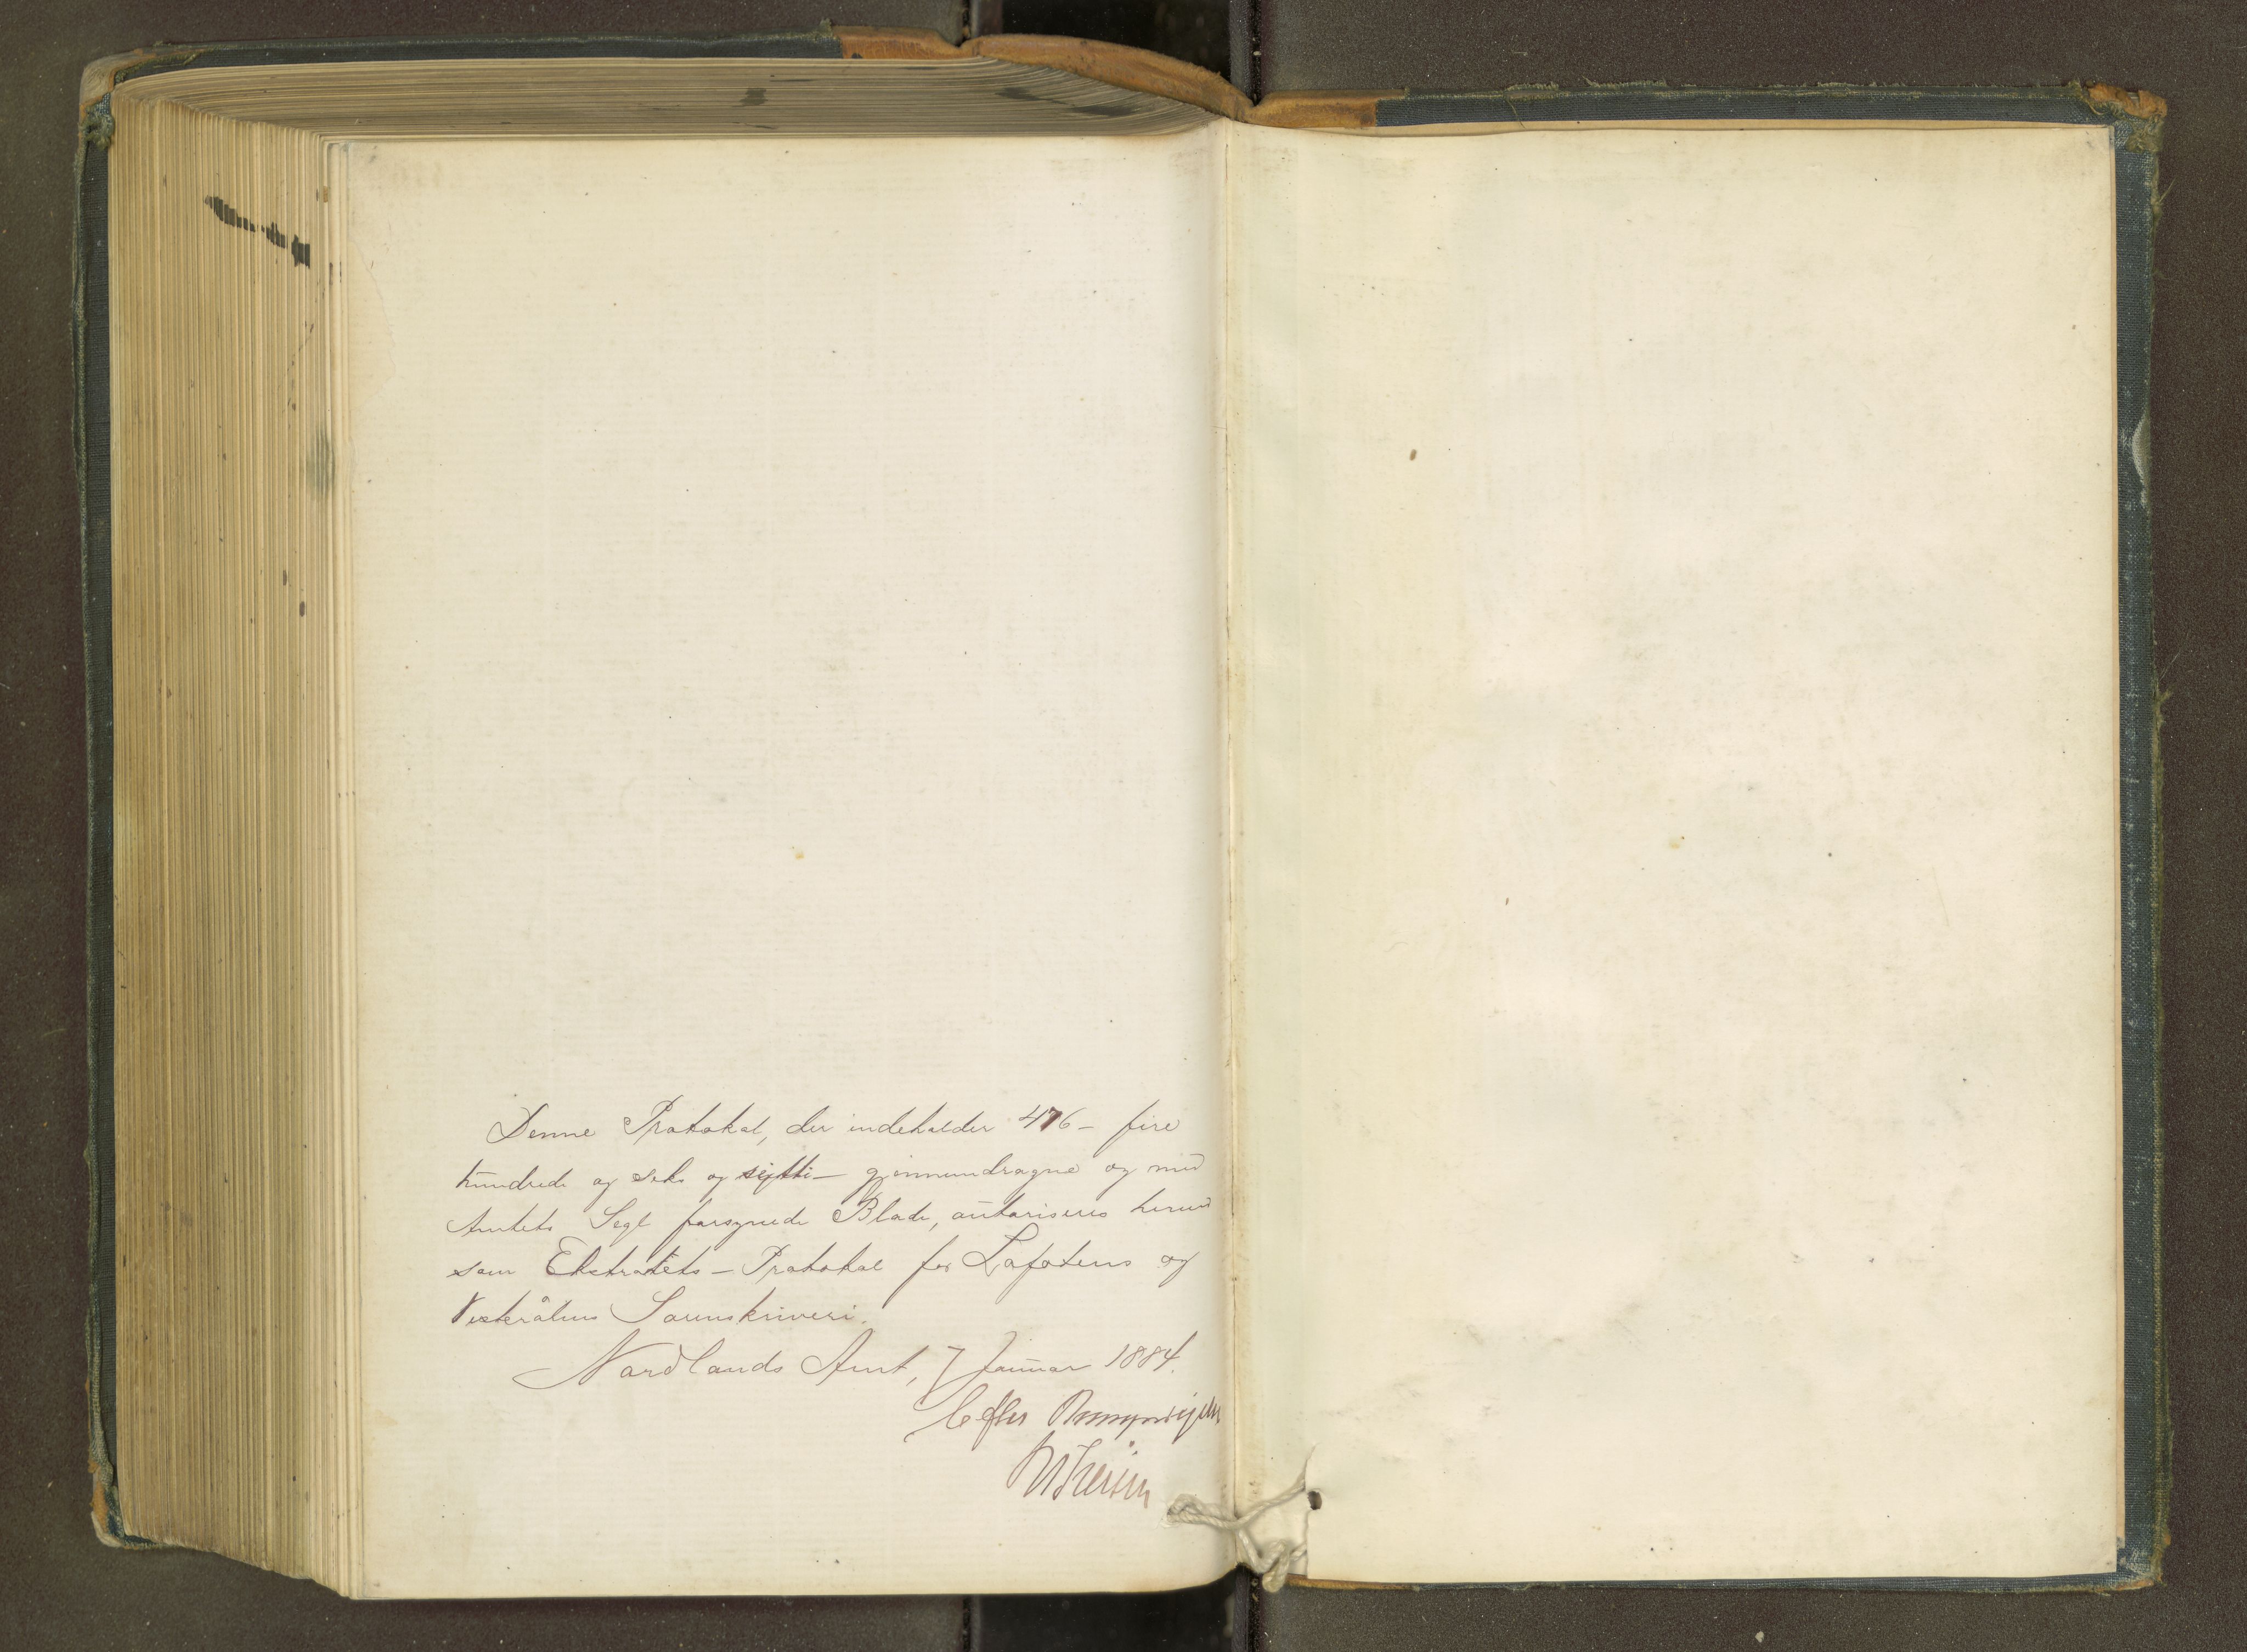 Denne Protokol, der indeholder 476 – fire
hundrede og seks og sytti – gjennemdragne og med
Amtets Segl forsynede Blade, autoriseres herved
som Ekstrakts – Protokol for Lofotens og
Vesterålens Sorenskriveri.
Nordlands Amt, 7 Januar 1884.